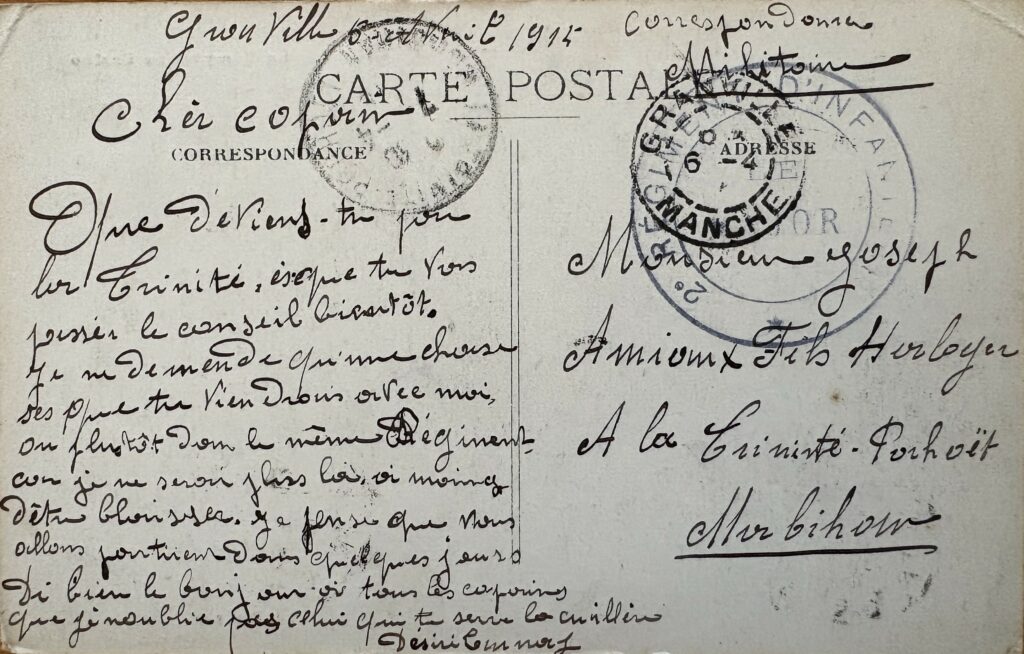 GranVille 6 avril 1915
Correspondance
Militaire
CARTE POSTALE
Cher copain
CORRESPONDANCE
ADRESSE
GRANVILLE
6 -4
MANCHE
2e RÉGIMENT D'INFANTERIE
Que deviens-tu par
la Trinité, esque tu vas
passer le conseil bientôt.
Je ne demende qu'une chose
ses que tu viendrais avec moi,
ou plutôt dans le même Régiment
car je ne serai plus la, a moins
d'être blaissée. Je pense que nous
allons partir dans quelques jours
Di bien le bonjour a tous les copains
que j'enoublie pas celui qui te serre la cuillère
Désiré
Monsieur Joseph
Amioux Fils Horloger
A la Trinité-Porhoët
Morbihan